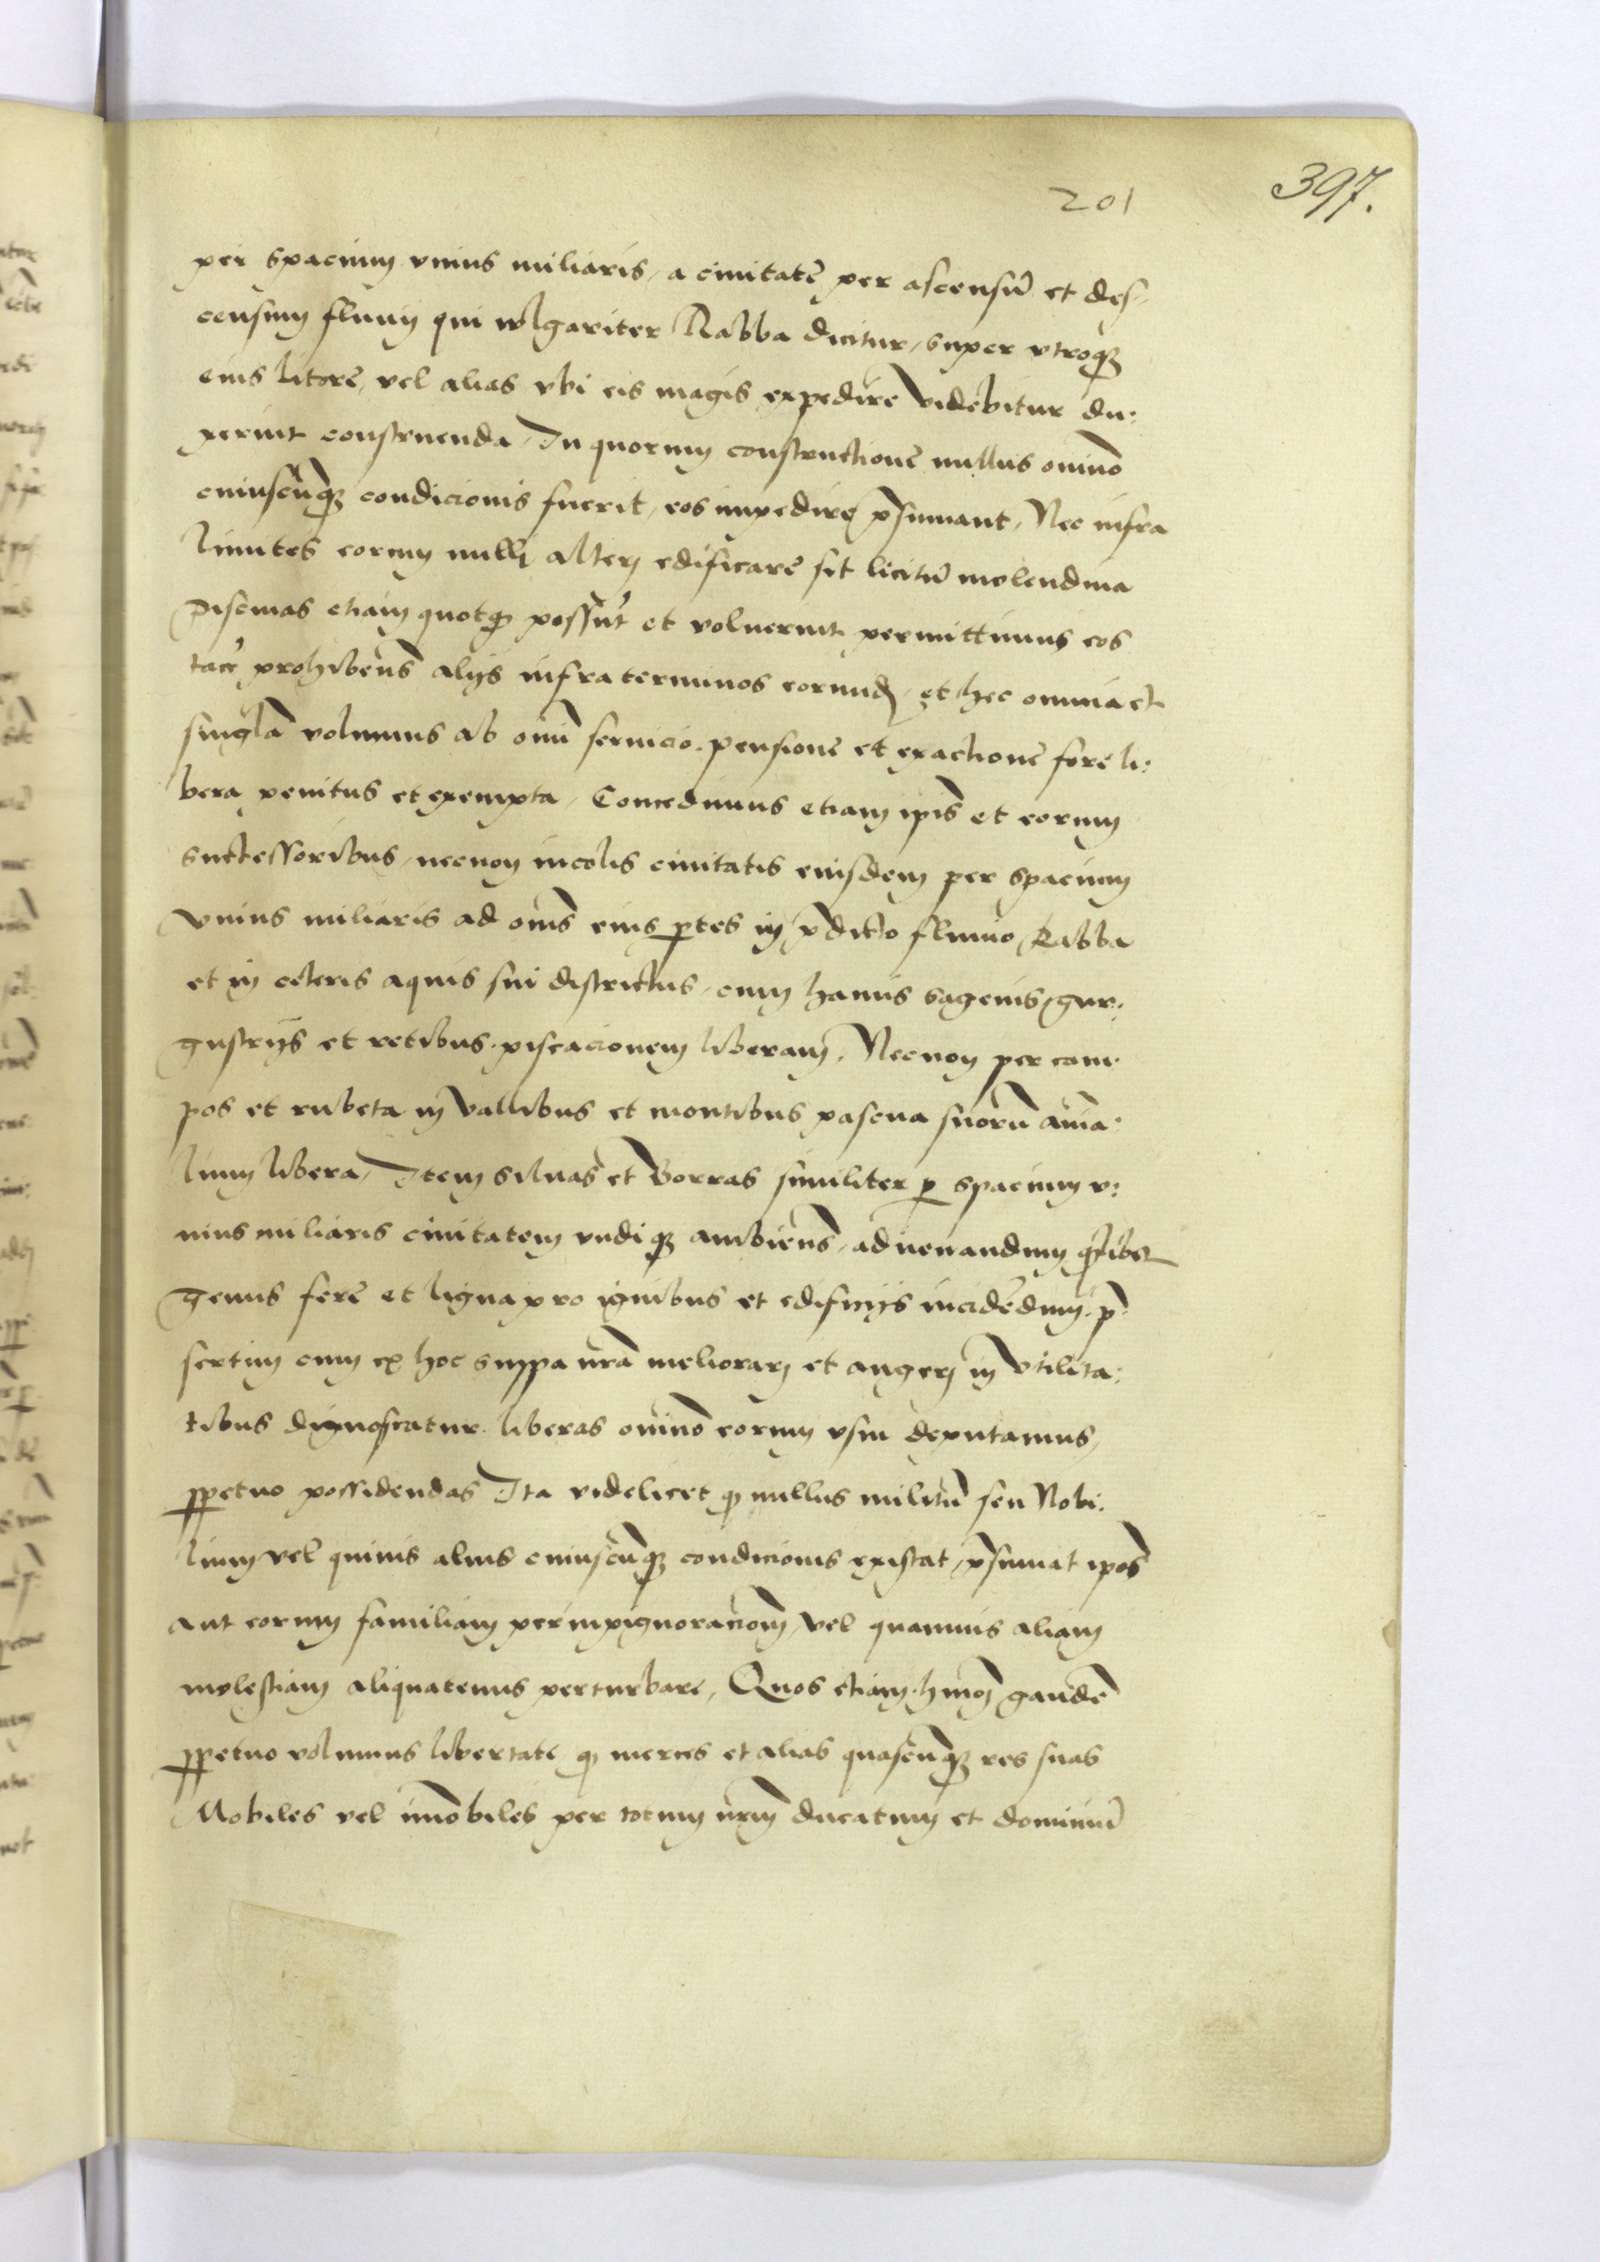 201
397.
per spacium vnius miliaris, a ciuitatē per ascensū et des-
censum fluuij qui wlgariter Rabba dicitur, super vtroqȝ
eius litorē, vel alias vbi eis magis expedire videbitur du:
xerint construenda, In quorum constructionē nullus oīno
cuiuscūqȝ condicionis fuerit, eos impedire p̄sumant, Nec infra
limites eorum nulli alteri edificarē sit licitū molendina
Piscinas etiam quotqȝ possūt et voluerint permittimus eos
prohibens̄ alijs infra terminos eorund, et hec omnia et
singl̄a volumus ab om̄i seruicio, pensionē et exactionē forē li:
bera penitus et exempta, Concedimus etiam ip̄is et eorum
successoribus, necnon incolis ciuitatis eiusdem per spacium
vnius miliaris ad om̄s eius p̱tes in p̄dicto fluuio Rabba
et in ceteris aquis sui districtus, cum hamis sagenis gur:
gustrijs et retibus piscacionem liberam, Necnon per cam-
pos et rubeta in vallibus et montibus pascua suorū aīma:
lium libera, Item siluas et Borras similiter ꝑ spacium v:
nius miliaris ciuitatem vndiqȝ ambiens̄, ad venandum qd̄libet
genus ferē et ligna pro ignibus et edificijs incidēdum, p̄-
sertim cum ex hoc suppa nr̄a meliorari et augeri in vtilita:
tibus dignoscatur liberas oīno eorum vsui deputamus,
ꝑpetuo possidendas Ita videlicet qȝ nullus militū seu Nobi:
lium vel quiuis alius cuiuscūqȝ condicionis existat, p̄sumat ip̄os
aut eorum familiam per inpignoracionē, vel quamuis aliam
molestiam aliquatenus perturbare, Quos etiam hm̄oi gaudē
ꝑpetuo volumus libertate qȝ merces et alias quascūqȝ res suas
Mobiles vel īmobiles per totum nr̄m ducatum et dominiū